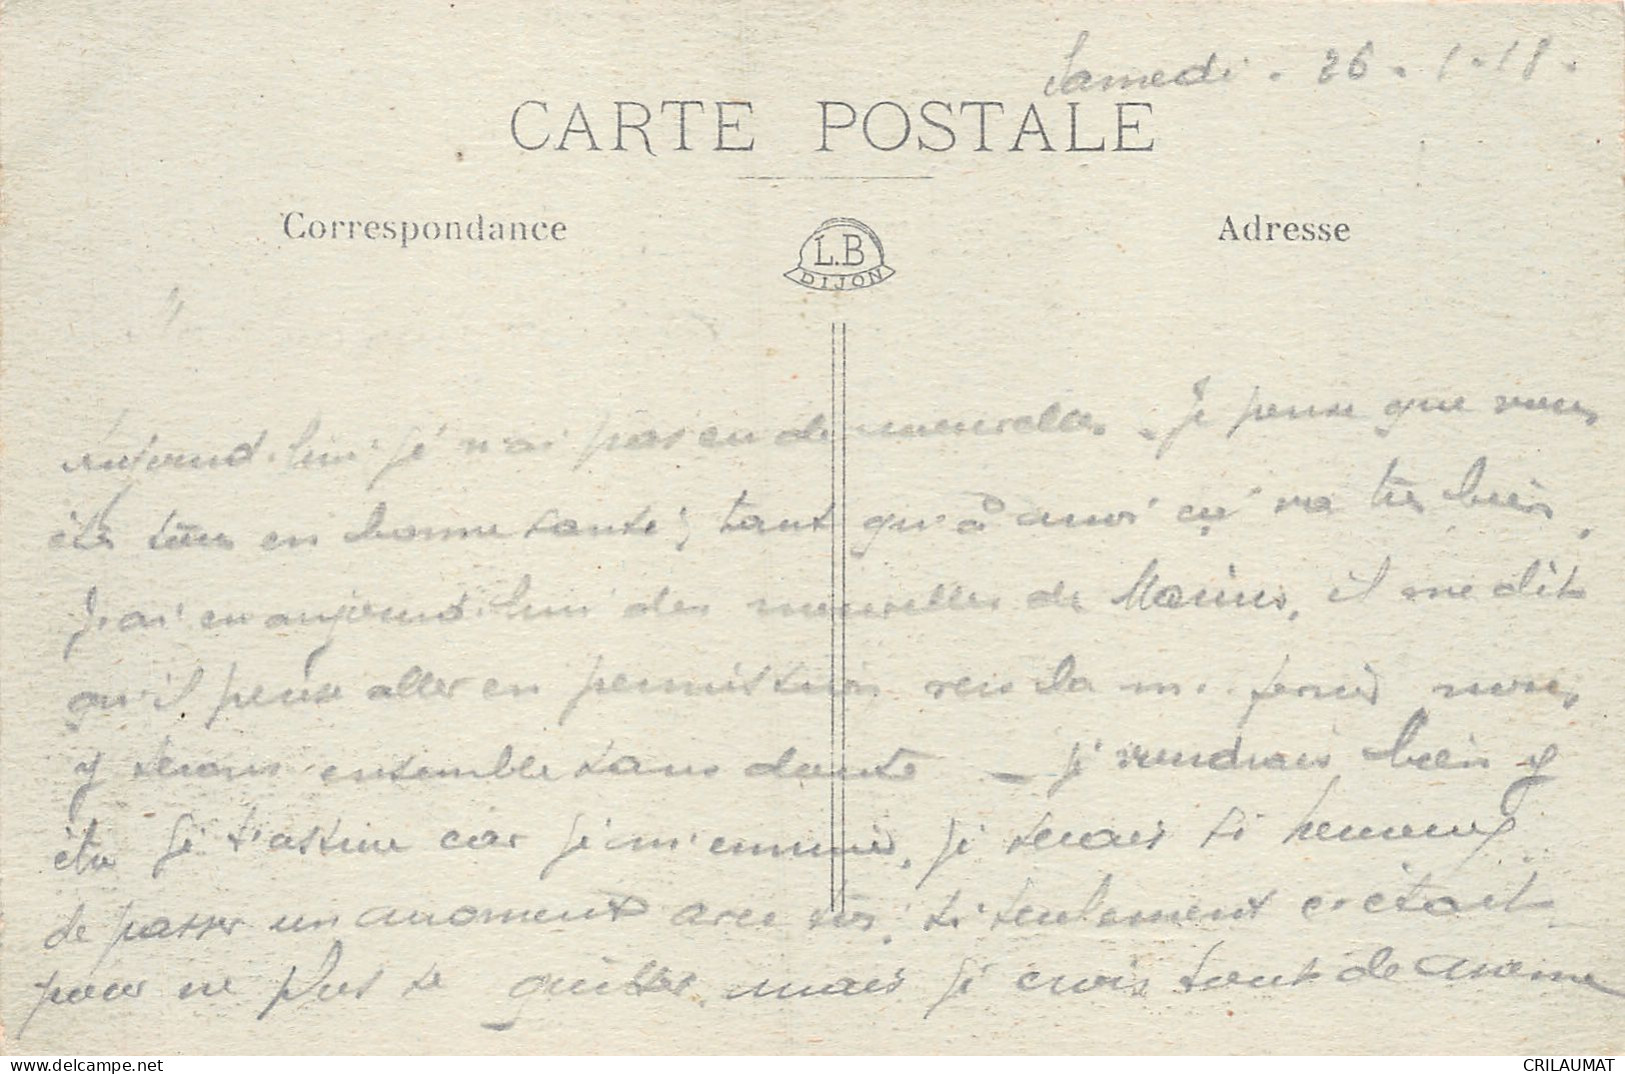 Samedi. 26. 1. 18.
CARTE POSTALE
Correspondance
Adresse
L.B
DIJON
Aujourd'hui je n'ai pas eu de nouvelles. Je pense que vous
êtes tous en bonne santé ; tant qu'à moi ça va très bien.
J'ai eu aujourd'hui des nouvelles de Marius, il me dit
qu'il pense aller en permission vers la mi-février nous
y serons ensemble sans doute — je voudrais bien y
être je t'assure car je m'ennuie, je serais si heureux
de passer un moment avec toi, si seulement c'était
pour ne plus se quitter mais je crois tout de même
CRILAUMAT